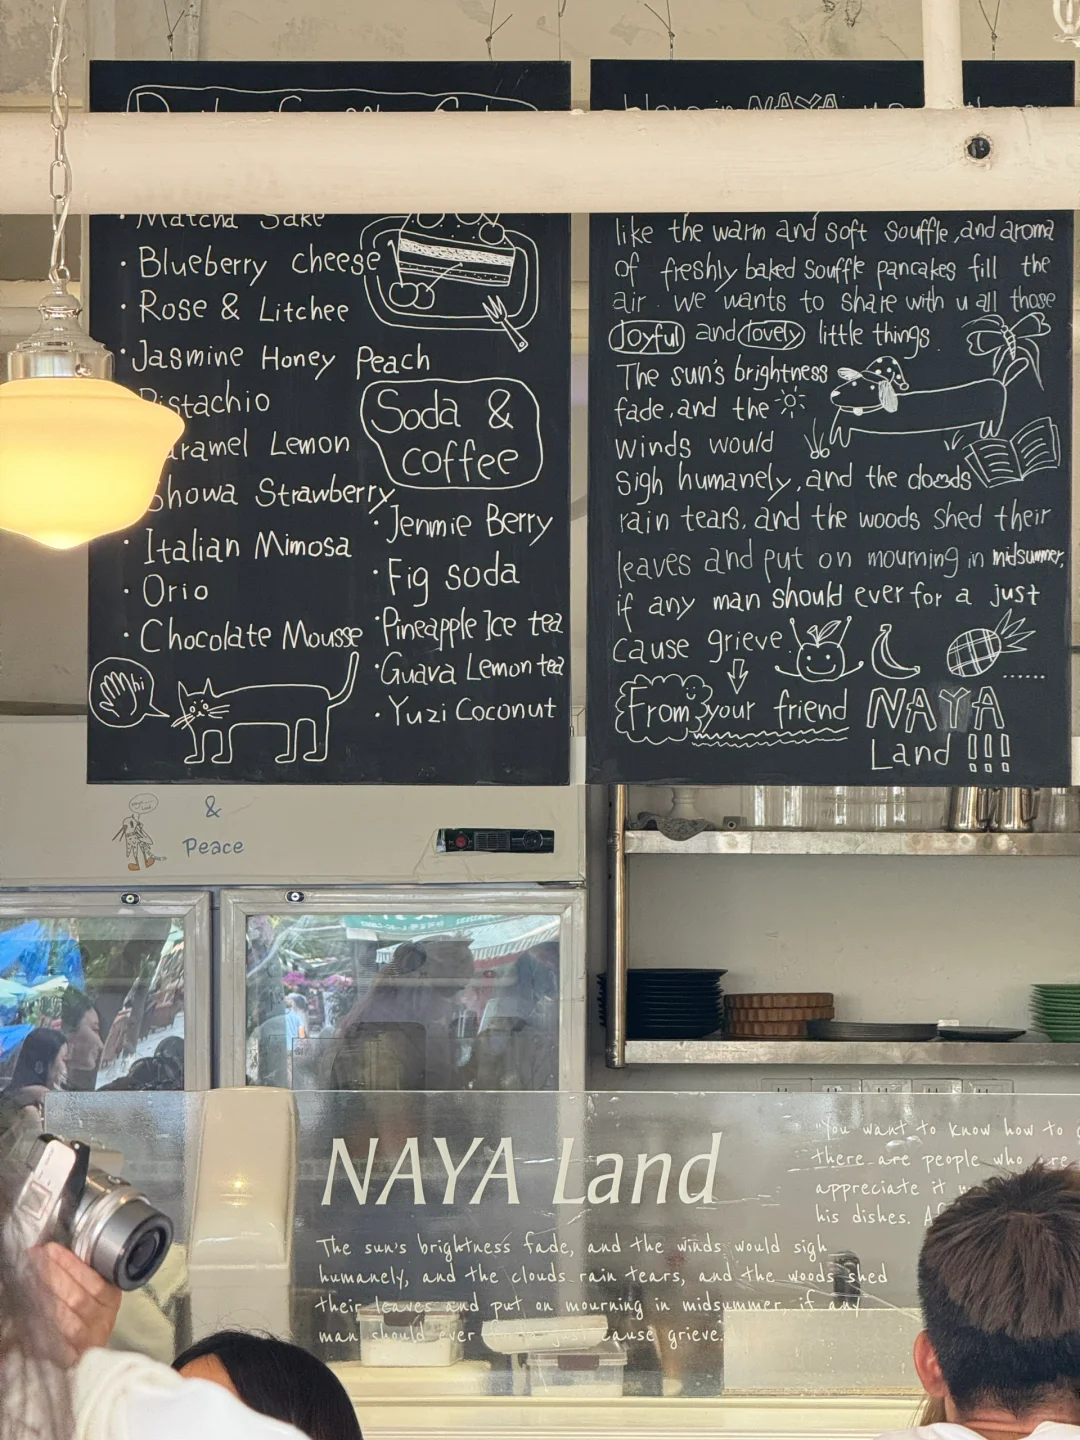 Matcha Sake
• Blueberry cheese
• Rose & Litchee
• Jasmine Honey Peach
Pistachio
Caramel Lemon
Showa Strawberry
• Italian Mimosa
• Orio
• Chocolate Mousse
hi
Soda &
coffee
• Jenmie Berry
• Fig soda
• Pineapple Ice tea
• Guava Lemon tea
• Yuzi Coconut
NAYA
like the warm and soft souffle, and aroma
of freshly baked souffle pancakes fill the
air. we wants to share with u all those
Joyful and lovely little things
The sun's brightness
fade, and the
winds would
sigh humanely, and the clouds
rain tears, and the woods shed their
leaves and put on mourning in midsummer,
if any man should ever for a just
cause grieve.
......
From your friend NAYA
Land !!!
&
Peace
NAYA Land
The sun's brightness fade, and the winds would sigh
humanely, and the clouds rain tears, and the woods shed
their leaves and put on mourning in midsummer, if any
man should ever just cause grieve.
"You want to know how to
there are people who are
appreciate it
his dishes.